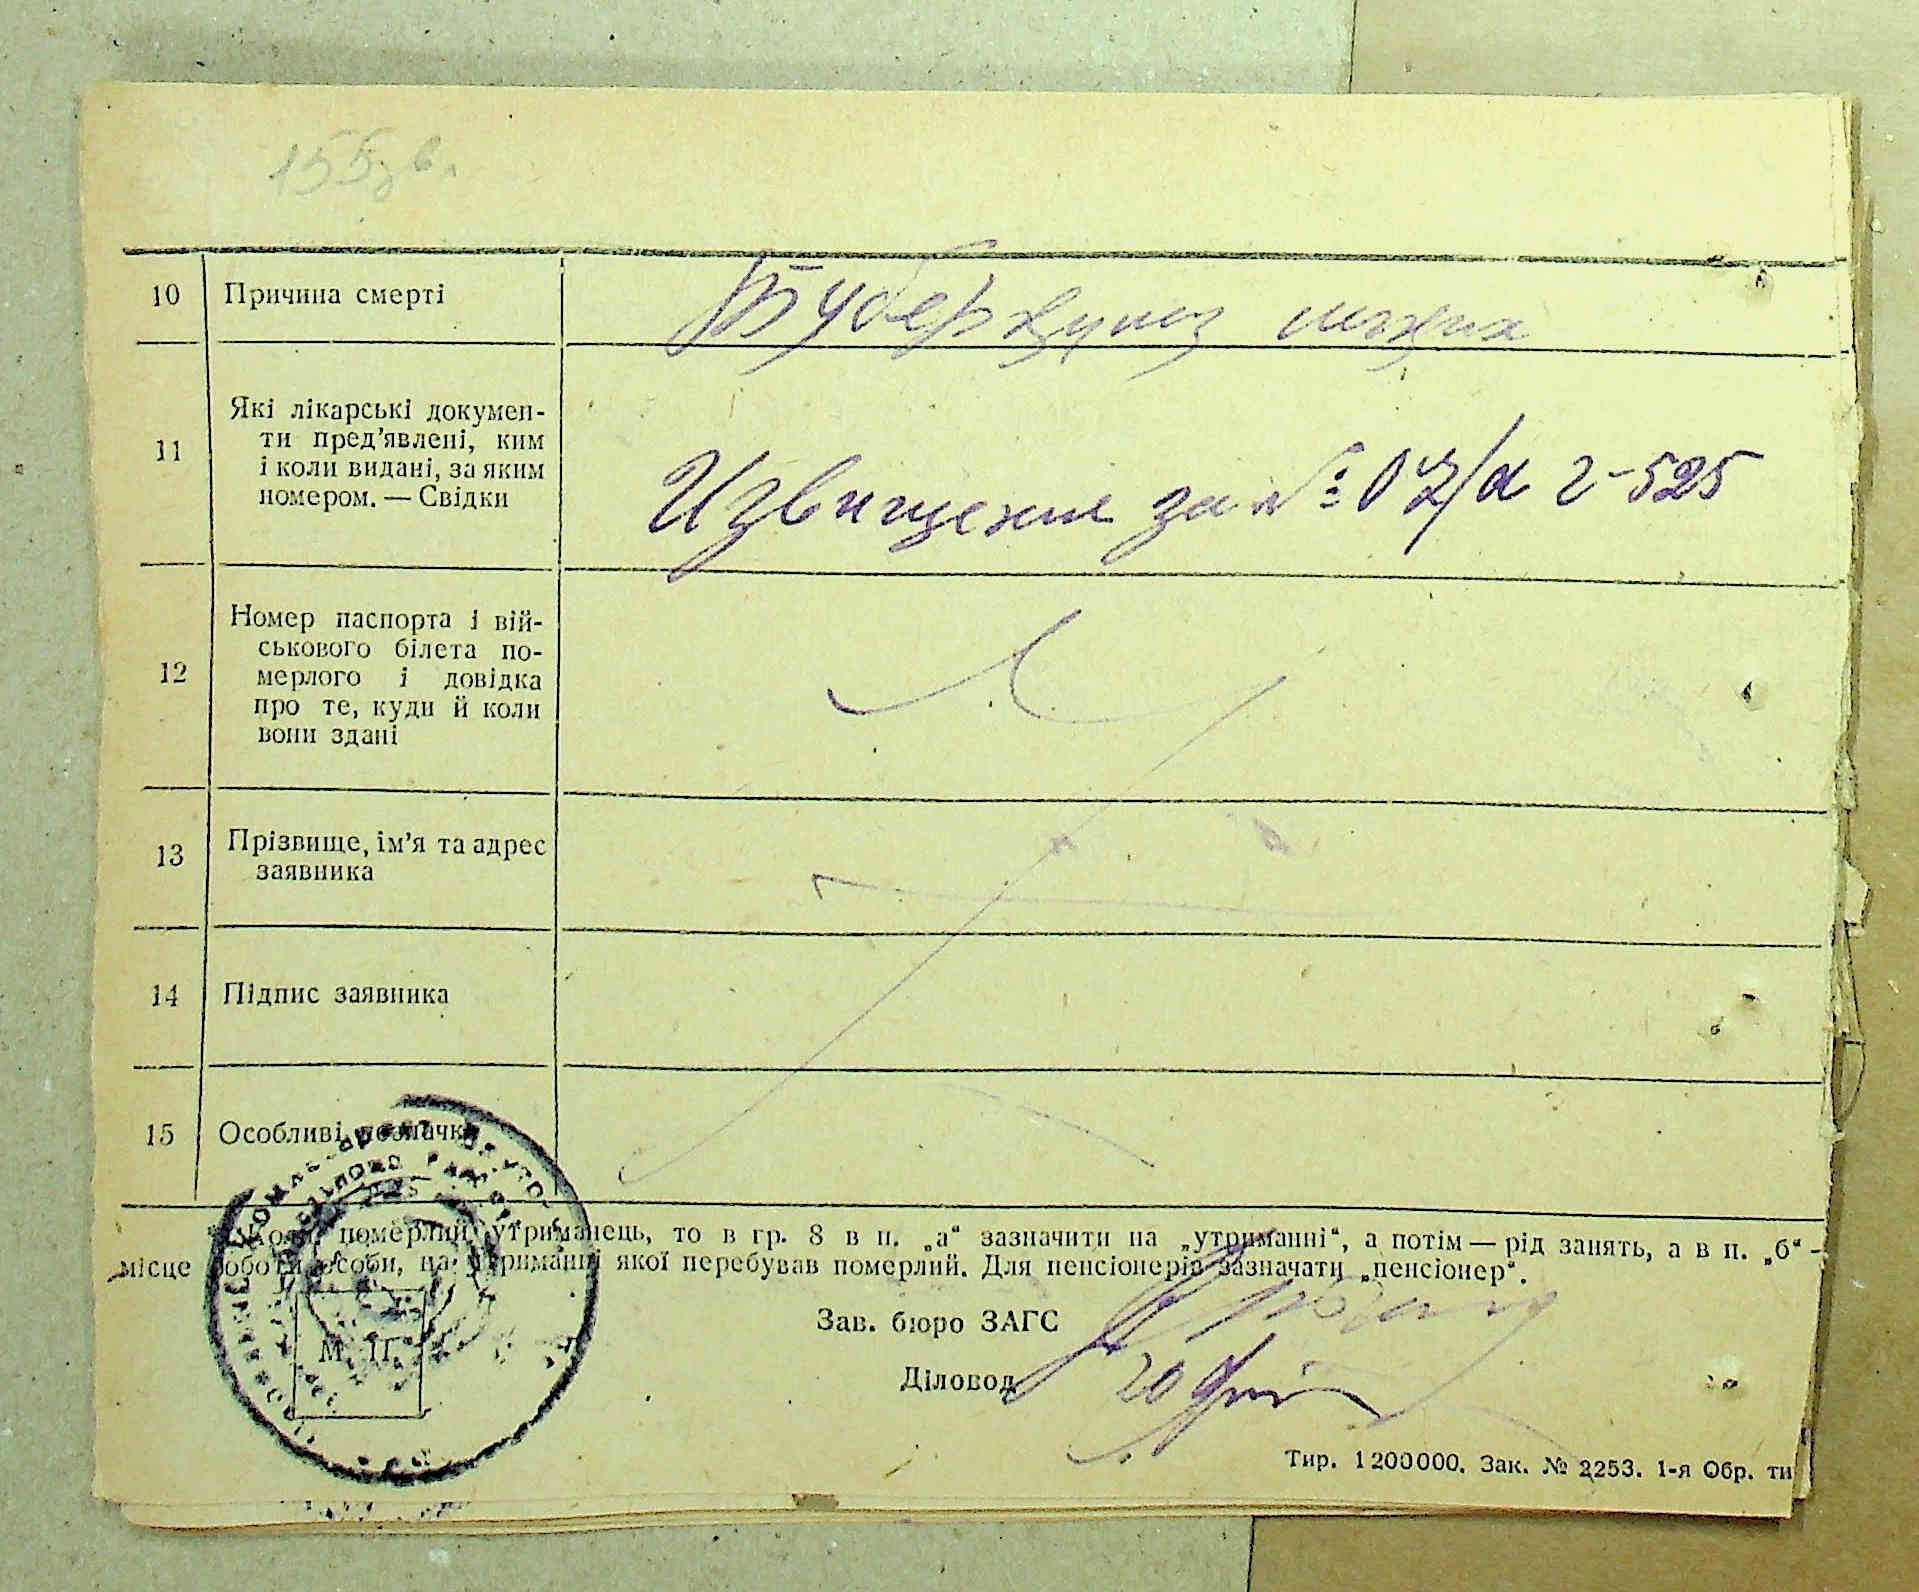 155зв.
10 Причина смерті Туберкульоз легких
11 Які лікарські докумен-
ти пред'явлені, ким
і коли видані, за яким
номером. — Свідки
Извищение за № 07/а 2-525
12 Номер паспорта і вій-
ськового білета по-
мерлого і довідка
про те, куди й коли
вони здані
13 Прізвище, ім'я та адрес
заявника
14 Підпис заявника
15 Особливі позначки
* Коли померлий утриманець, то в гр. 8 в п. „а“ зазначити на „утриманні“, а потім — рід занять, а в п. „б“ -
місце роботи особи, на утриманні якої перебував померлий. Для пенсіонерів зазначати „пенсіонер“.
Зав. бюро ЗАГС
М. П.
Діловод
Тир. 1200000. Зак. № 2253. 1-я Обр. ти